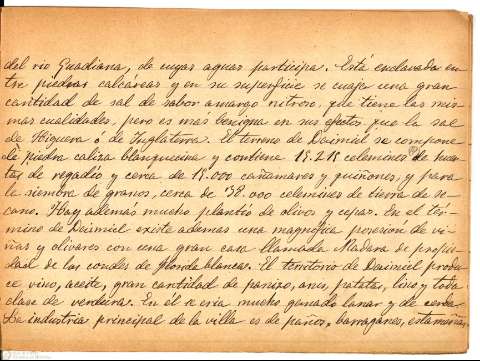 del rio Guadiana, de cuyas aguas participa. Está enclavada en-
tre piedras calcáreas y en su superficie se cuaja una gran
cantidad de sal de sabor amargo nitroso, que tiene las mis-
mas cualidades, pero es mas benigna en sus efectos, que la sal
de Higuera ó de Inglaterra. El terreno de Daimiel se compone
de piedra caliza blanquecina y contiene 15.215 celemines de huer-
tas de regadio y cerca de 15.000 cañamares y quiñones, y para
la siembra de granos, cerca de 138.000 celemines de tierra de se-
cano. Hay además mucho plantío de olivos y cepas. En el tér-
mino de Daimiel existe ademas una magnifica posesion de vi-
ñas y olivares con una gran casa llamada Madara de propie-
dad de los condes de blanca. El territorio de Daimiel produ-
ce vino, aceite, gran cantidad de panizo, anis, patatas, lino y toda
clase de verduras. En él se cria mucho ganado lanar y de cerda.
La industria principal de la villa es de paños, barraganes, estameñas,